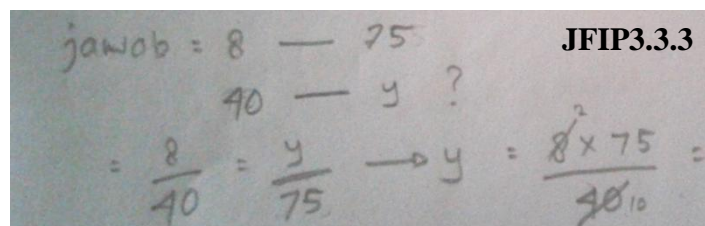 jawab = 8 — 75 JFIP3.3.3
40 — y ?
= 8/40 = y/75 → y = 8̸ ² x 75 / 4̸0̸ 10 =